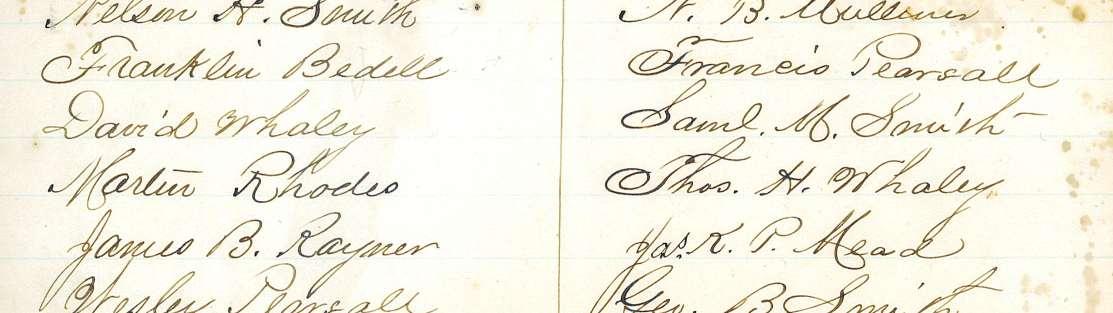 Nelson H. Smith
Franklin Bedell
David Whaley
Martin Rhodes
James B. Rayner
Wesley Pearsall
N. B. Mulliner
Francis Pearsall
Saml. M. Smith
Thos. H. Whaley
Jas. K. P. Mead
Geo. B Smith